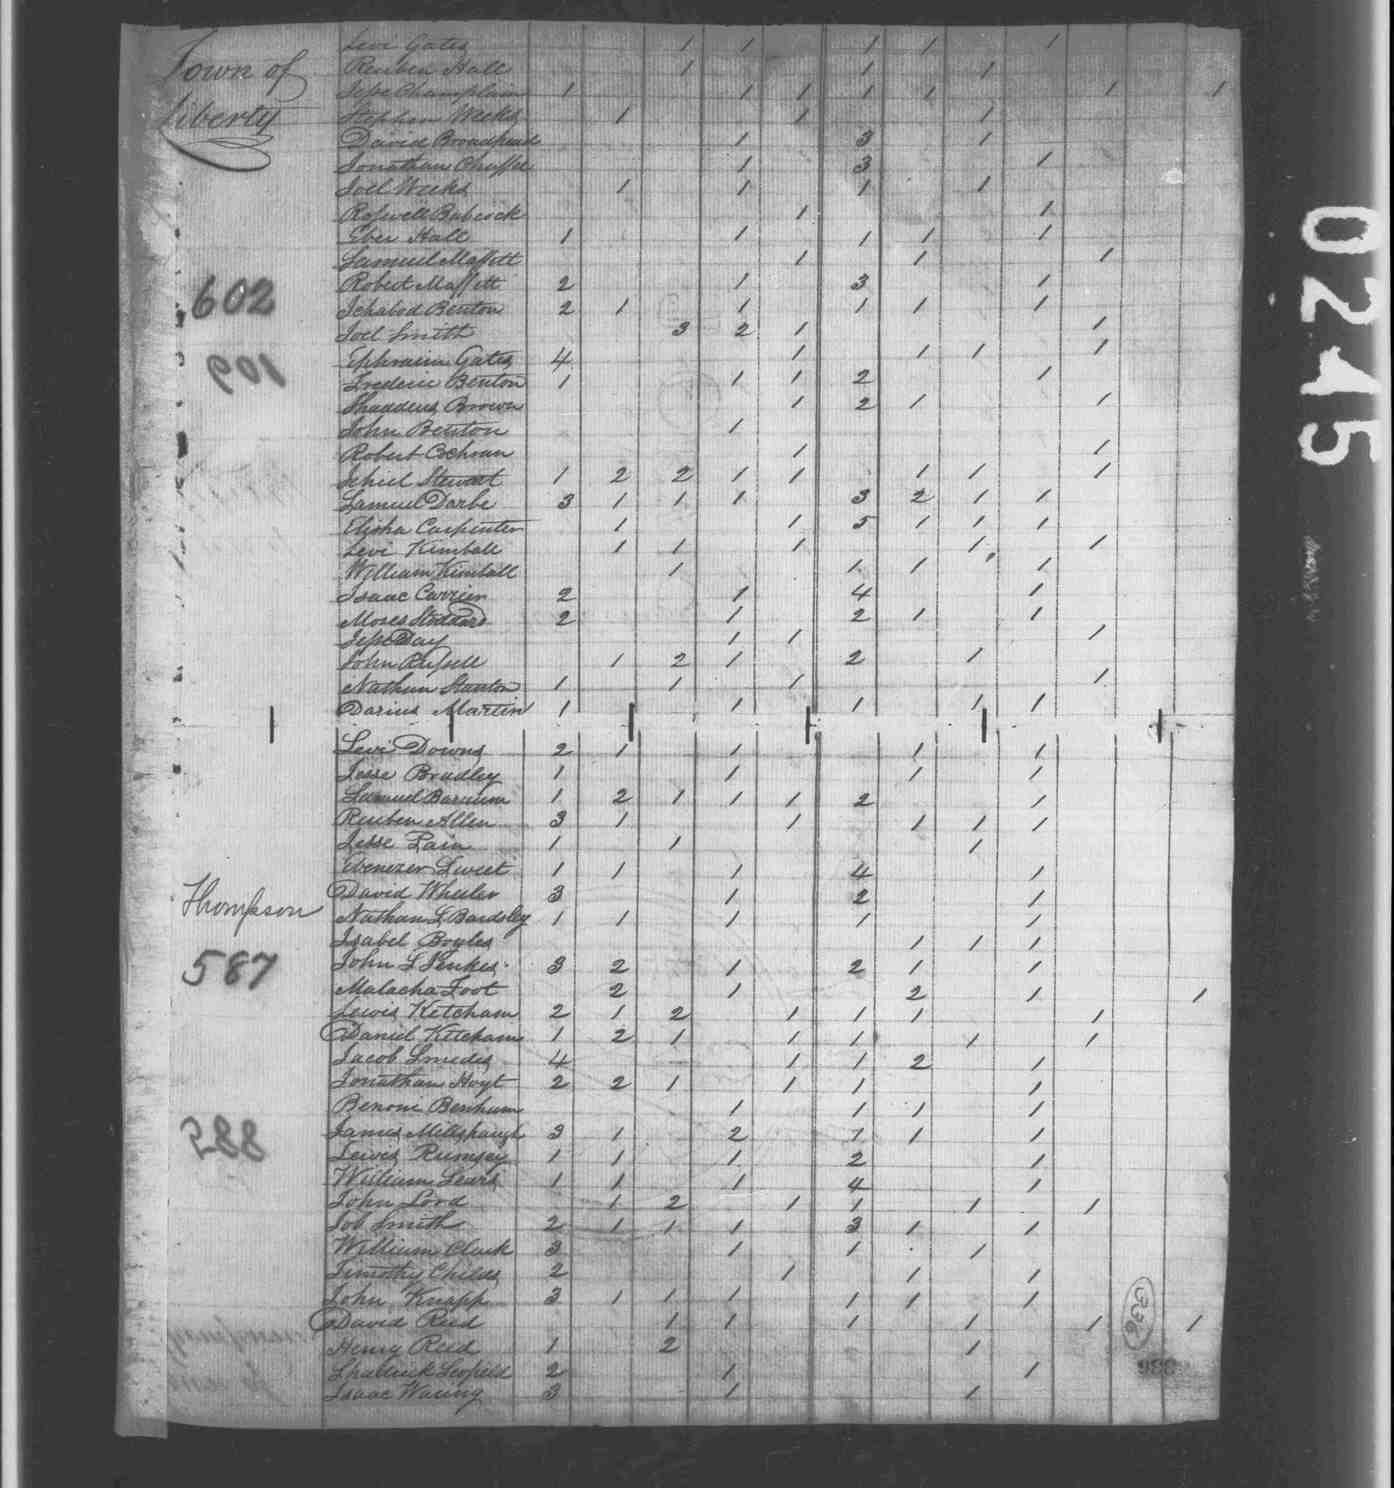 Town of
Liberty
Levi Gates 1 1 1 1 1
Reuben Hall 1 1 1
Jesse Champlain 1 1 1 1 1 1 1
Stephen Weeks 1 1 1
David Broadhead 1 3 1
Jonathan Chaffee 1 3 1
Joel Weeks 1 1 1 1
Roswell Babcock 1 1
Eber Hall 1 1 1 1 1
Samuel Maffett 1 1 1
Robert Maffett 2 1 3 1
602
Ichabod Benton 2 1 1 1 1 1
Joel Smith 3 2 1 1
Ephraim Gates 4 1 1 1 1
Frederic Benton 1 1 1 2 1
Thaddeus Brown 1 2 1 1
John Benton 1
Robert Cochran 1 1
Jehiel Stewart 1 2 2 1 1 1 1 1
Samuel Darbe 3 1 1 1 3 2 1 1
Elisha Carpenter 1 1 5 1 1 1
Levi Kimball 1 1 1 1 1
William Kimball 1 1 1 1
Isaac Carrier 2 1 4 1
Moses Stoddard 2 1 2 1 1
Jesse Day 1 1 1
John Russell 1 2 1 2 1
Nathan Stanton 1 1 1 1
Darius Martin 1 1 1 1 1
Levi Downs 2 1 1 1 1
Jesse Bradley 1 1 1 1
Samuel Barnum 1 2 1 1 1 2 1
Reuben Allen 3 1 1 1 1 1
Jesse Pain 1 1 1
Ebenezer Sweet 1 1 1 4 1
Thompson
David Wheeler 3 1 2 1
Nathan L Bardsley 1 1 1 1 1
Isabel Boyles 1 1 1
587
John L Jenkes 3 2 1 2 1 1
Malacha Foot 2 1 2 1 1
Lewis Ketcham 2 1 2 1 1 1 1
Daniel Ketcham 1 2 1 1 1 1 1
Jacob Smedes 4 1 1 2 1
Jonathan Hoyt 2 2 1 1 1 1
Benoni Benham 1 1 1 1
James Millspaugh 3 1 2 1 1 1
Lewis Rumsey 1 1 1 2 1
William Lewis 1 1 1 4 1
John Lord 1 2 1 1 1 1
Job Smith 2 1 1 1 3 1 1
William Clark 3 1 1 1
Timothy Childs 2 1 1 1
John Knapp 3 1 1 1 1 1 1
David Reed 1 1 1 1 1 1
Henry Reed 1 2 1
Shadrick Scofield 2 1 1
Isaac Waring 3 1 1
336
0245